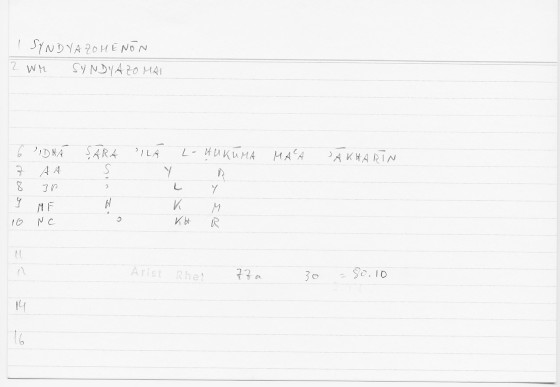 1 SYNDYAZOMENŌN
2 WM SYNDYAZOMAI
6 ʾIDHĀ ṢĀRA ʾILĀ L-ḤUKŪMA MAʿA ʾĀKHARĪN
7 AA Ṣ Y R
8 3P ʾ L Y
9 MF Ḥ K M
10 NC ʾ KH R
11
Arist Rhet 77a 30 = 90.10
14
16